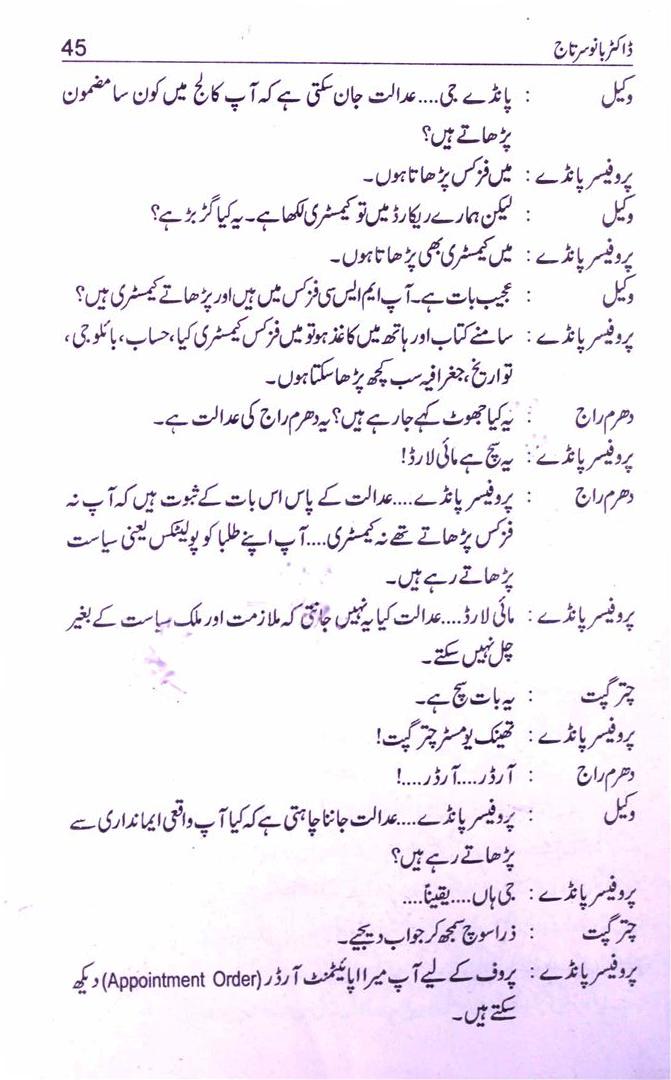 ڈاکٹر بانو سرتاج 45
وکیل : پانڈے جی.... عدالت جان سکتی ہے کہ آپ کالج میں کون سا مضمون
پڑھاتے ہیں؟
پروفیسر پانڈے : میں فزکس پڑھاتا ہوں۔
وکیل : لیکن ہمارے ریکارڈ میں تو کیمسٹری لکھا ہے۔ یہ کیا گڑبڑ ہے؟
پروفیسر پانڈے : میں کیمسٹری بھی پڑھاتا ہوں۔
وکیل : عجیب بات ہے۔ آپ ایم ایس سی فزکس میں ہیں اور پڑھاتے کیمسٹری ہیں؟
پروفیسر پانڈے : سامنے کتاب اور ہاتھ میں کاغذ ہو تو میں فزکس کیمسٹری کیا، حساب، بائلوجی،
تواریخ، جغرافیہ سب کچھ پڑھا سکتا ہوں۔
دھرم راج : یہ کیا جھوٹ کہے جا رہے ہیں؟ یہ دھرم راج کی عدالت ہے۔
پروفیسر پانڈے : یہ سچ ہے مائی لارڈ!
دھرم راج : پروفیسر پانڈے.... عدالت کے پاس اس بات کے ثبوت ہیں کہ آپ نہ
فزکس پڑھاتے تھے نہ کیمسٹری.... آپ اپنے طلبا کو پولیٹکس یعنی سیاست
پڑھاتے رہے ہیں۔
پروفیسر پانڈے : مائی لارڈ.... عدالت کیا یہ نہیں جانتی کہ ملازمت اور ملک سیاست کے بغیر
چل نہیں سکتے۔
چتر گپت : یہ بات سچ ہے۔
پروفیسر پانڈے : تھینک یو مسٹر چتر گپت!
دھرم راج : آرڈر.... آرڈر....!
وکیل : پروفیسر پانڈے.... عدالت جاننا چاہتی ہے کہ کیا آپ واقعی ایمانداری سے
پڑھاتے رہے ہیں؟
پروفیسر پانڈے : جی ہاں.... یقیناً....
چتر گپت : ذرا سوچ سمجھ کر جواب دیجیے۔
پروفیسر پانڈے : پروف کے لیے آپ میرا اپائیٹمنٹ آرڈر (Appointment Order) دیکھ
سکتے ہیں۔